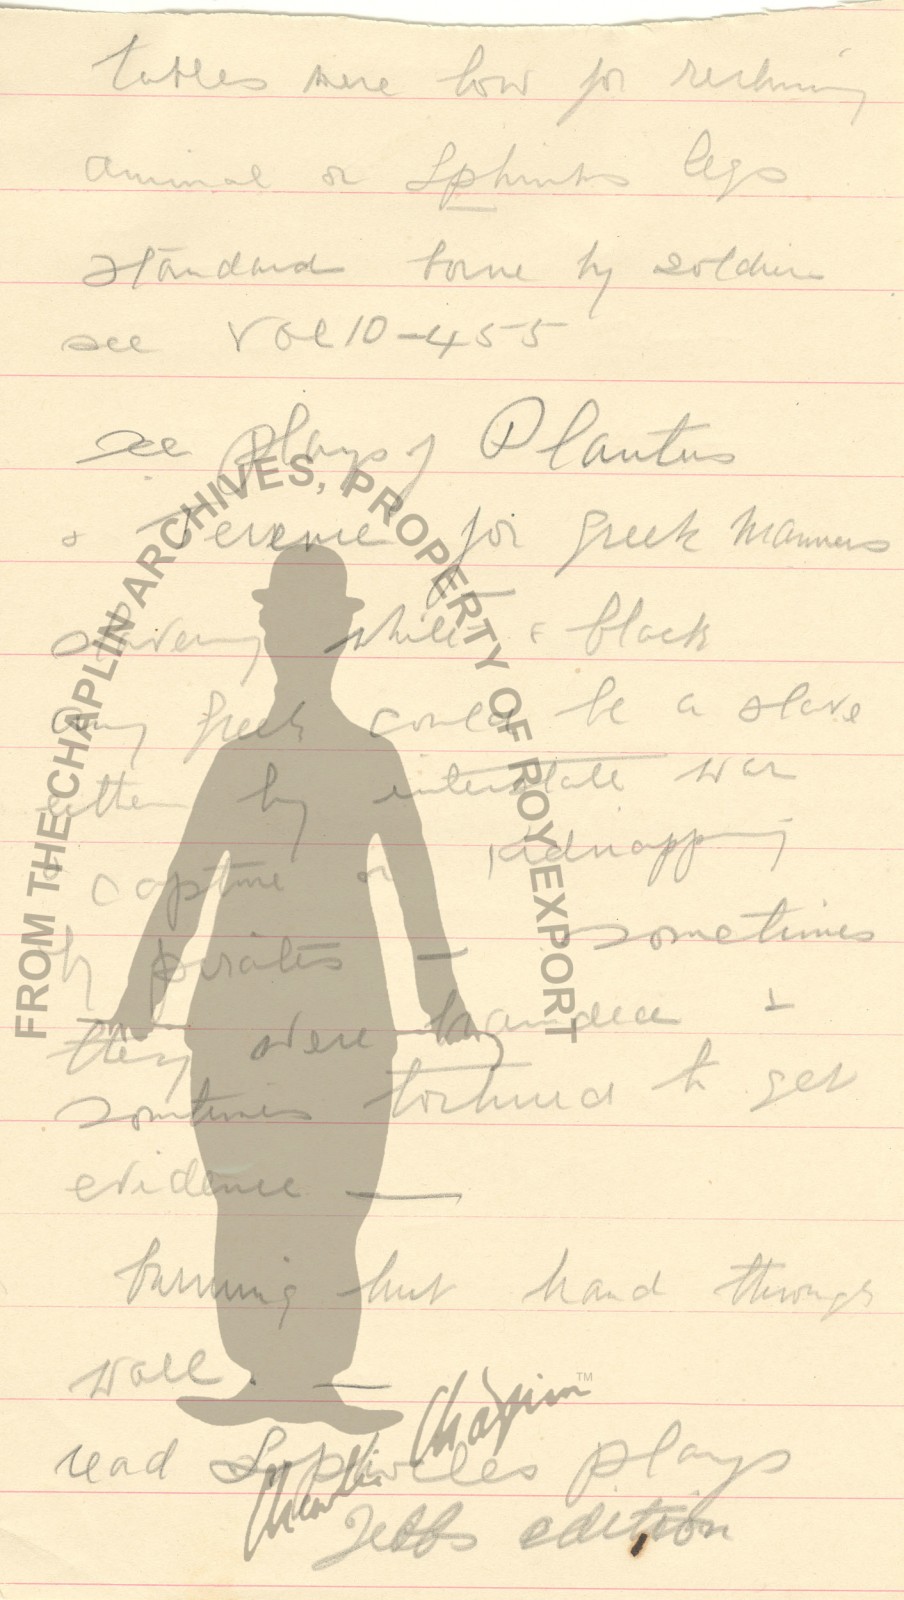 tables were low for reclining
animal or Sphinks legs
standard borne by soldiers
see Vol 10-455
see plays of Plautus
& Terence for greek manners
slavery white & black
any freek could be a slave
either by interstate war
& capture or kidnapping
by pirates — sometimes
they were branded &
sometimes tortured to get
evidence —
burning hut hand through
wall. —
read Sophocles plays
Jebbs edition
FROM THE CHAPLIN ARCHIVES, PROPERTY OF ROY EXPORT
Charlie Chaplin
TM